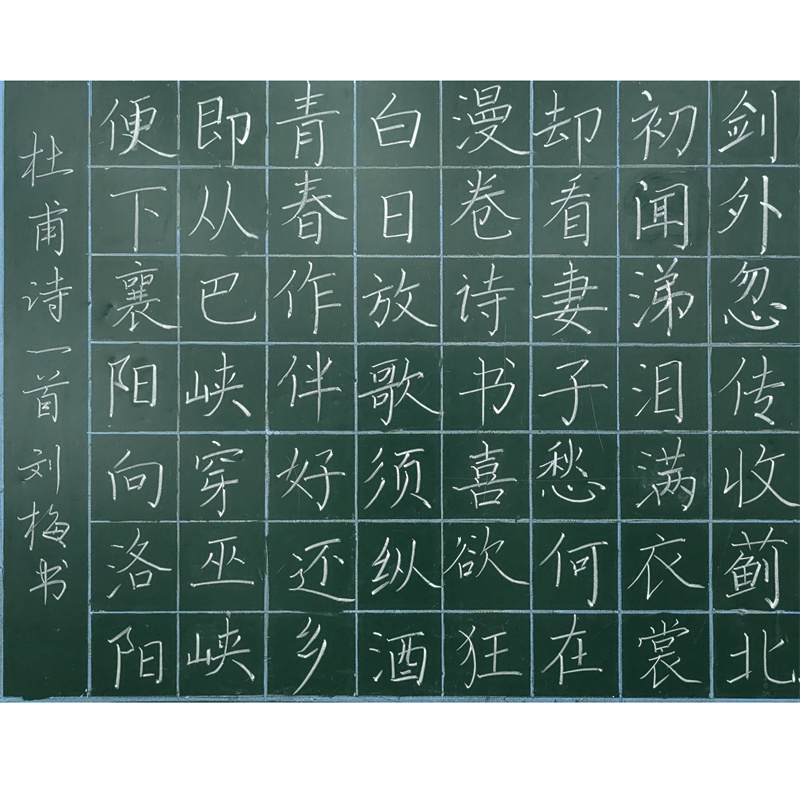 剑外忽传收蓟北
初闻涕泪满衣裳
却看妻子愁何在
漫卷诗书喜欲狂
白日放歌须纵酒
青春作伴好还乡
即从巴峡穿巫峡
便下襄阳向洛阳
杜甫诗一首刘梅书